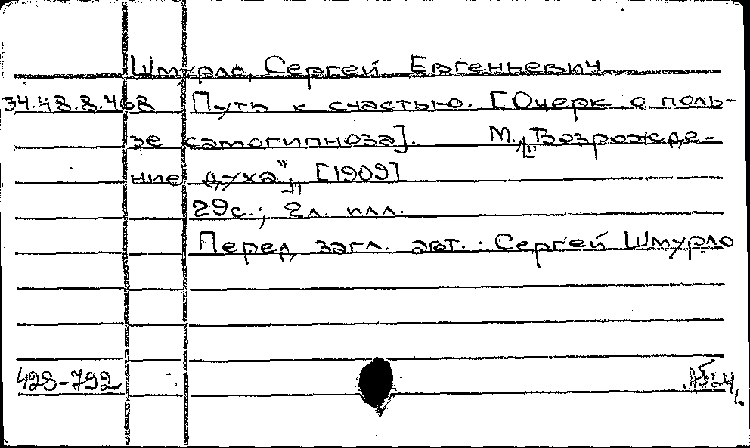 Шмурло, Сергей Евгеньевич
34.48.8.468 Путь к счастью. [Очерк о поль-
зе самогипноза]. М., "Возрожде-
ние духа", [1909]
29с.; 2л. илл.
Перед загл. авт.: Сергей Шмурло
428-792